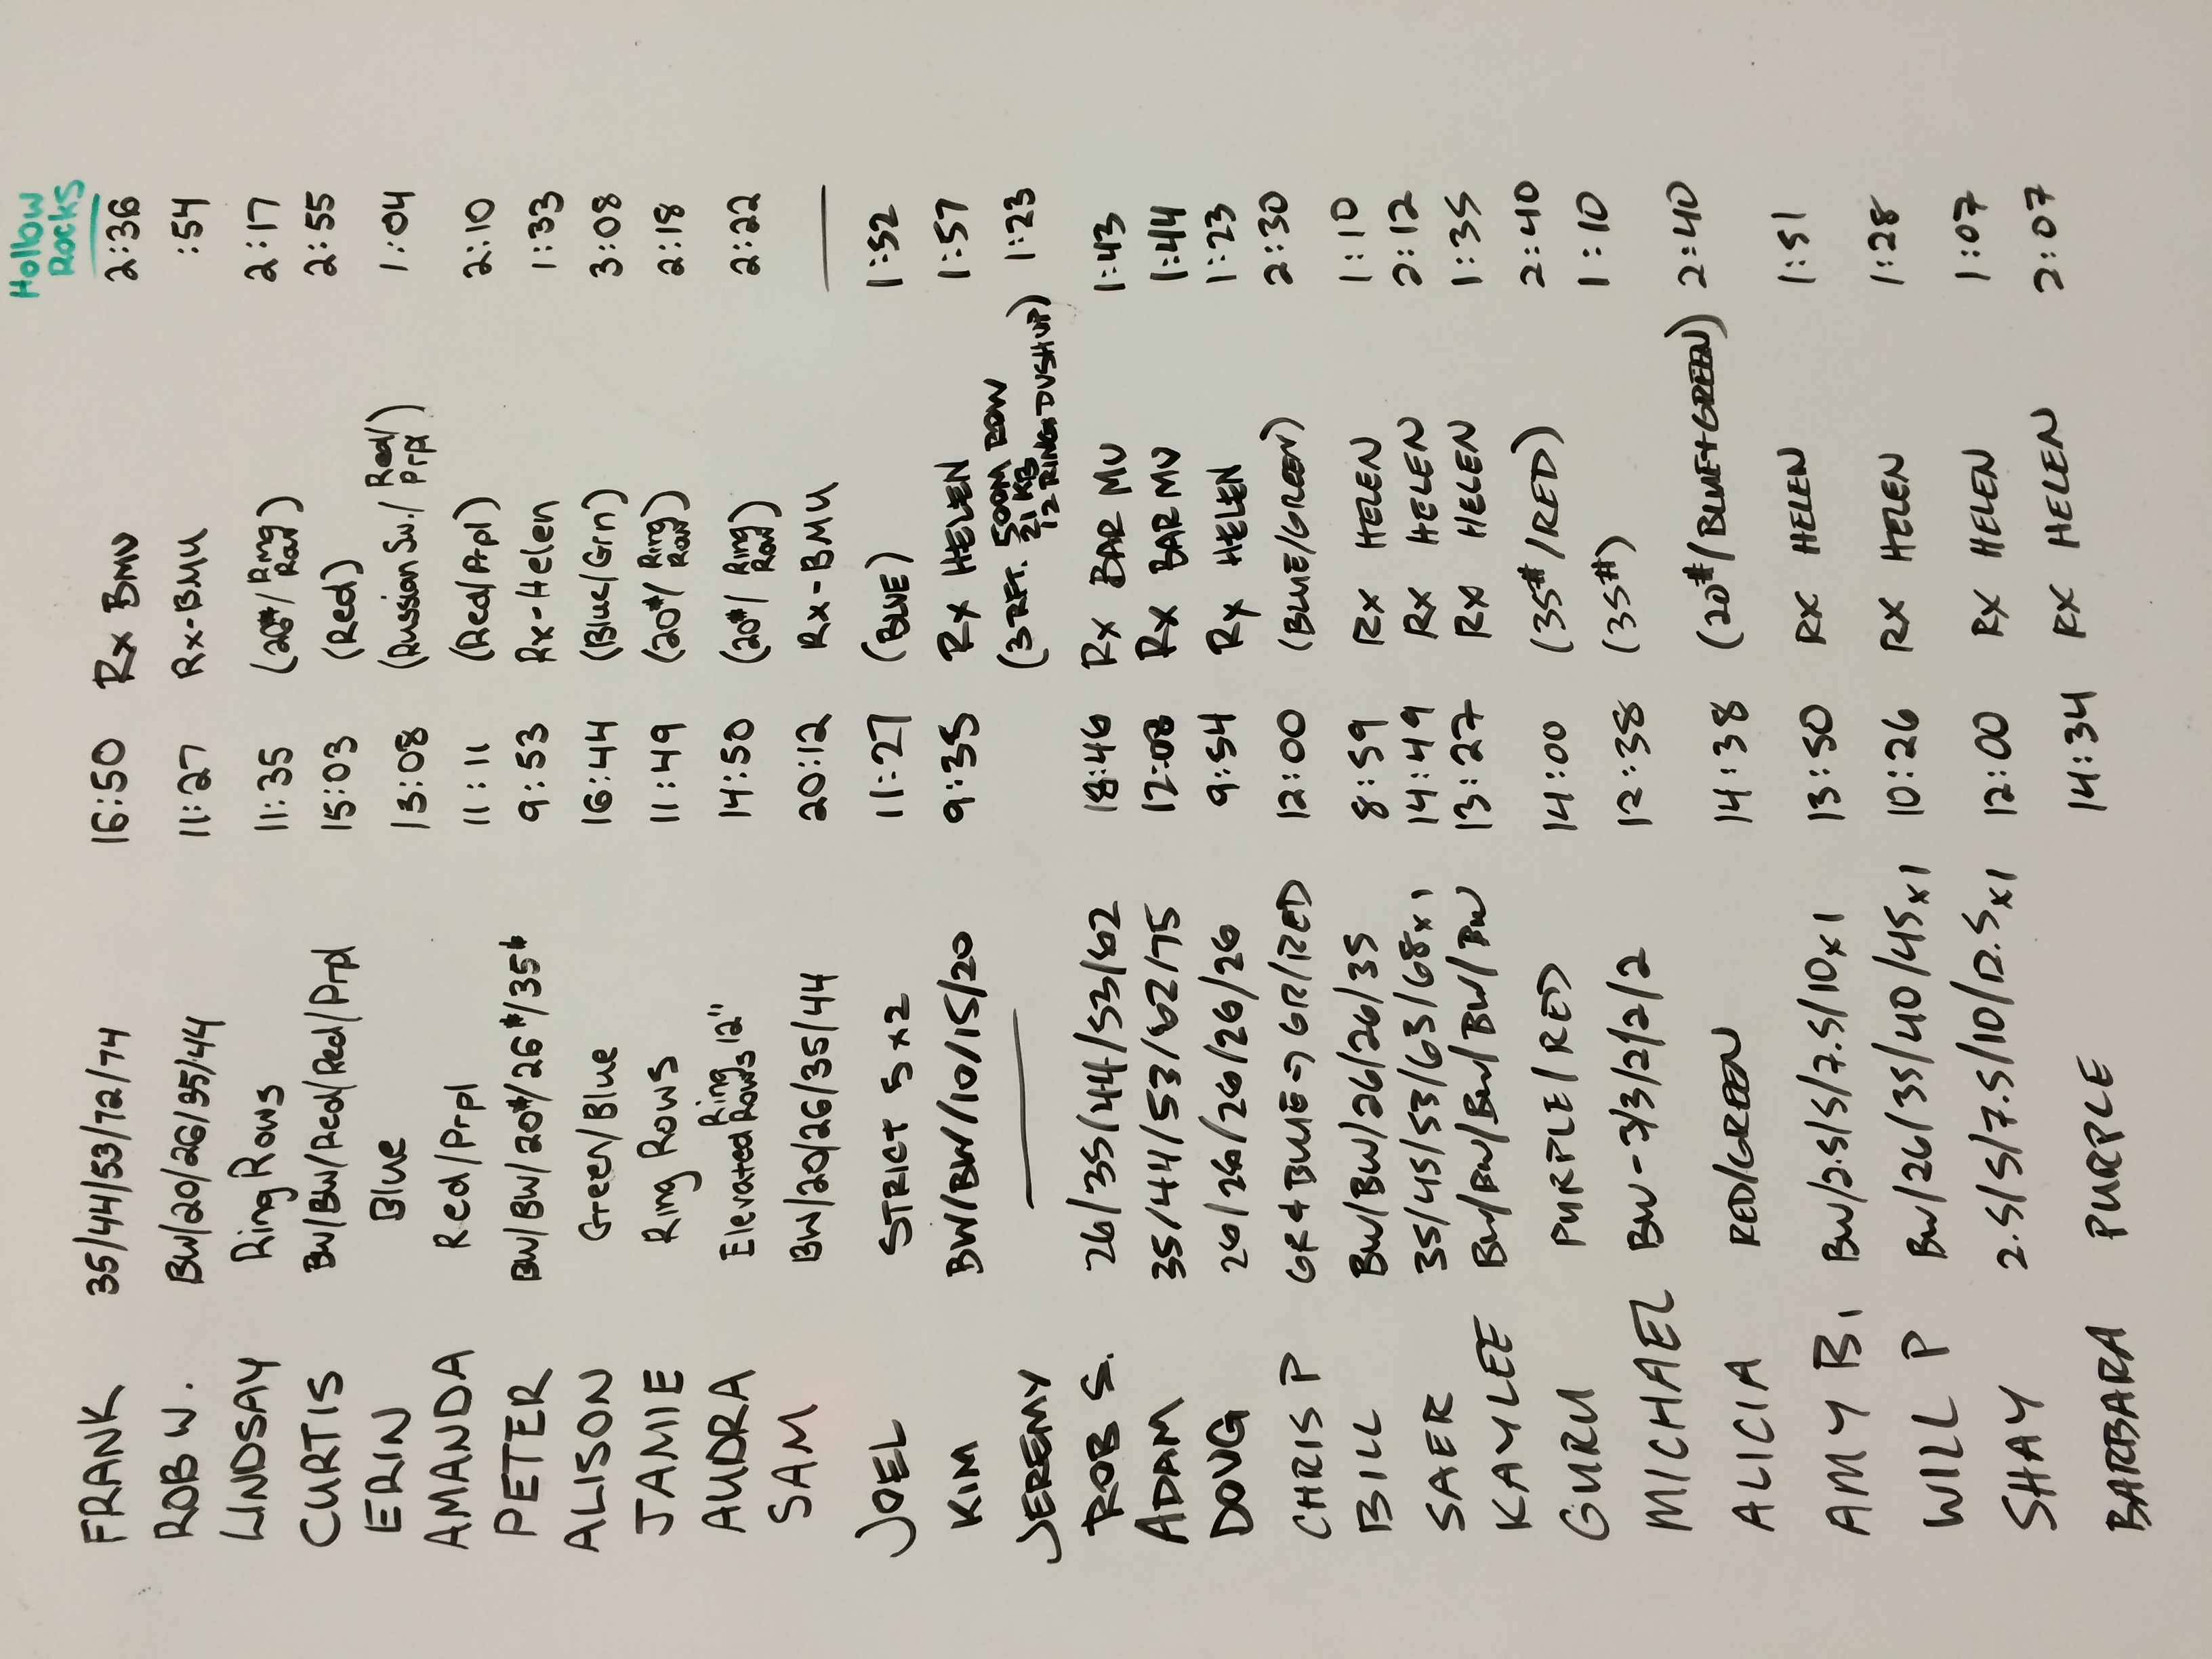 Hollow
Rocks
FRANK 35/44/53/72/74 16:50 Rx BMU 2:36
ROB W. BW/20/26/35/44 11:27 Rx-BMU :54
LINDSAY Ring Rows 11:35 (26#/Ring Row) 2:17
CURTIS BW/BW/Red/Red/Prpl 15:03 (Red) 2:55
ERIN Blue 13:08 (Russian Sw./Red/Prpl) 1:04
AMANDA Red/Prpl 11:11 (Red/Prpl) 2:10
PETER BW/BW/20#/26#/35# 9:53 Rx-Helen 1:33
ALISON Green/Blue 16:44 (Blue/Grn) 3:08
JAMIE Ring Rows 11:49 (20#/Ring Row) 2:18
AUDRA Elevated Ring Rows 12" 14:50 (20#/Ring Row) 2:22
SAM BW/20/26/35/44 20:12 Rx-BMU —
JOEL STRICT 5x2 11:27 (BLUE) 1:52
KIM BW/BW/10/15/20 9:35 Rx HELEN 1:57
JEREMY — (3 RFT. 500M ROW 21 KB 12 RING PUSHUP) 1:23
ROB S. 26/35/44/53/62 18:46 Rx BAR MU 1:43
ADAM 35/44/53/62/75 12:08 Rx BAR MU 1:44
DOUG 26/26/26/26/26 9:54 Rx HELEN 1:23
CHRIS P GR+BLUE→GR/RED 12:00 (BLUE/GREEN) 2:30
BILL BW/BW/26/26/35 8:59 Rx HELEN 1:10
SAER 35/45/53/63/68x1 14:49 Rx HELEN 2:12
KAYLEE BW/BW/BW/BW/BW 13:27 Rx HELEN 1:35
GURU PURPLE/RED 14:00 (35#/RED) 2:40
MICHAEL BW-3/3/2/2/2 12:38 (35#) 1:10
ALICIA RED/GREEN 14:38 (20#/BLUE+GREEN) 2:40
AMY B. BW/2.5/5/7.5/10x1 13:50 RX HELEN 1:51
WILL P BW/26/35/40/45x1 10:26 RX HELEN 1:28
SHAY 2.5/5/7.5/10/12.5x1 12:00 RX HELEN 1:07
BARBARA PURPLE 14:34 RX HELEN 2:07